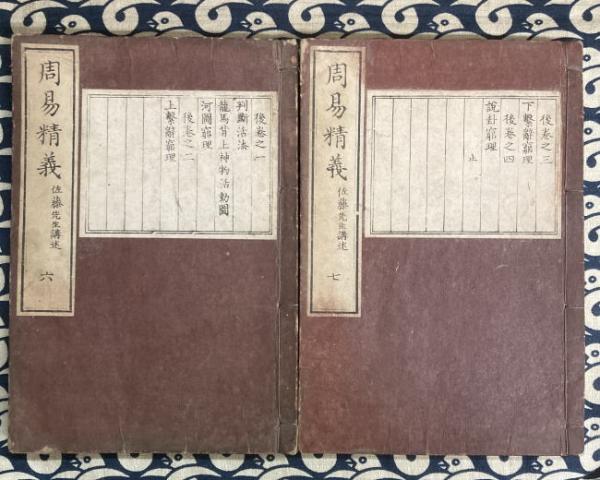 周易精義 佐藤先生講述 六
後卷之一
判斷活法
龍馬背上神物活動圖
河圖窮理
後卷之二
上繫辭窮理
周易精義 佐藤先生講述 七
後卷之三
下繫辭窮理
後卷之四
說卦窮理
止